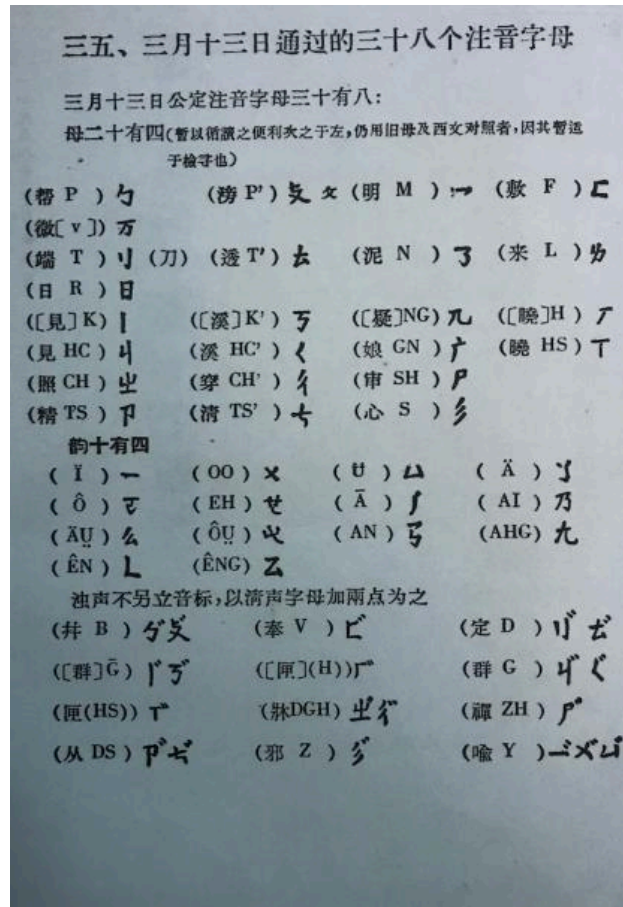 三五、三月十三日通过的三十八个注音字母
三月十三日公定注音字母三十有八:
母二十有四(暫以循演之便利次之于左,仍用旧母及西文对照者,因其暫适
于檢寻也)
(帮 P )ㄅ (滂 P')攵 攵 (明 M ) (敷 F )ㄈ
(微[ v ])万
(端 T )刂 (刀) (透 T')ㄊ (泥 N )ㄋ (来 L )ㄌ
(日 R )日
([見]K)丨 ([溪]K')ㄎ ([疑]NG)ㄫ ([曉]H )ㄏ
(見 HC )ㄐ (溪 HC')ㄑ (娘 GN )ㄬ (曉 HS )ㄒ
(照 CH )ㄓ (穿 CH' )ㄔ (审 SH )ㄕ
(精 TS )ㄗ (清 TS' )ㄘ (心 S )ㄙ
韵十有四
( Ï )一 ( OO )ㄨ ( Ʉ )ㄩ ( Ä )
( Ô )ㄛ ( EH )ㄝ ( Ā ) ( AI )乃
( ÄṲ )ㄠ ( ÔṲ ) ( AN )ㄢ (AHG)ㄤ
( ÊN )ㄴ (ÊNG)ㄥ
浊声不另立音标,以清声字母加兩点为之
(並 B )ㄅ゙攵゙ (奉 V )ㄈ゙ (定 D )刂゙ㄊ゙
([群]Ḡ )丨゙ㄎ゙ ([匣](H))ㄏ゙ (群 G )ㄐ゙ㄑ゙
(匣(HS))ㄒ゙ (牀DGH)ㄓ゙ㄔ゙ (禪 ZH )ㄕ゙
(从 DS )ㄗ゙ㄘ゙ (邪 Z )ㄙ゙ (喩 Y )一゙ㄨ゙ㄩ゙